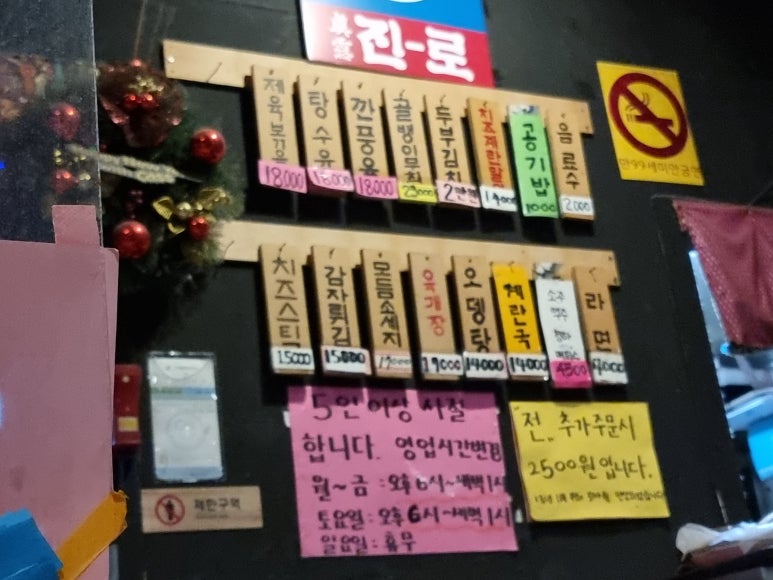 眞露
진-로
제육볶음
18000
탕수육
18000
깐풍육
18000
골뱅이무침
23000
두부김치
2만원
치즈계란말이
14000
공기밥
1000
음료수
2000
만99세미만금연
치즈스틱
15000
감자튀김
15000
모듬소세지
육개장
19000
오뎅탕
14000
계란국
14000
소주
맥주
4500
라면
제한구역
5인이상 사절
합니다. 영업시간변경
월~금 : 오후 6시~새벽 1시
토요일 : 오후 6시~새벽 1시
일요일 : 휴무
전. 추가주문시
2500원입니다.